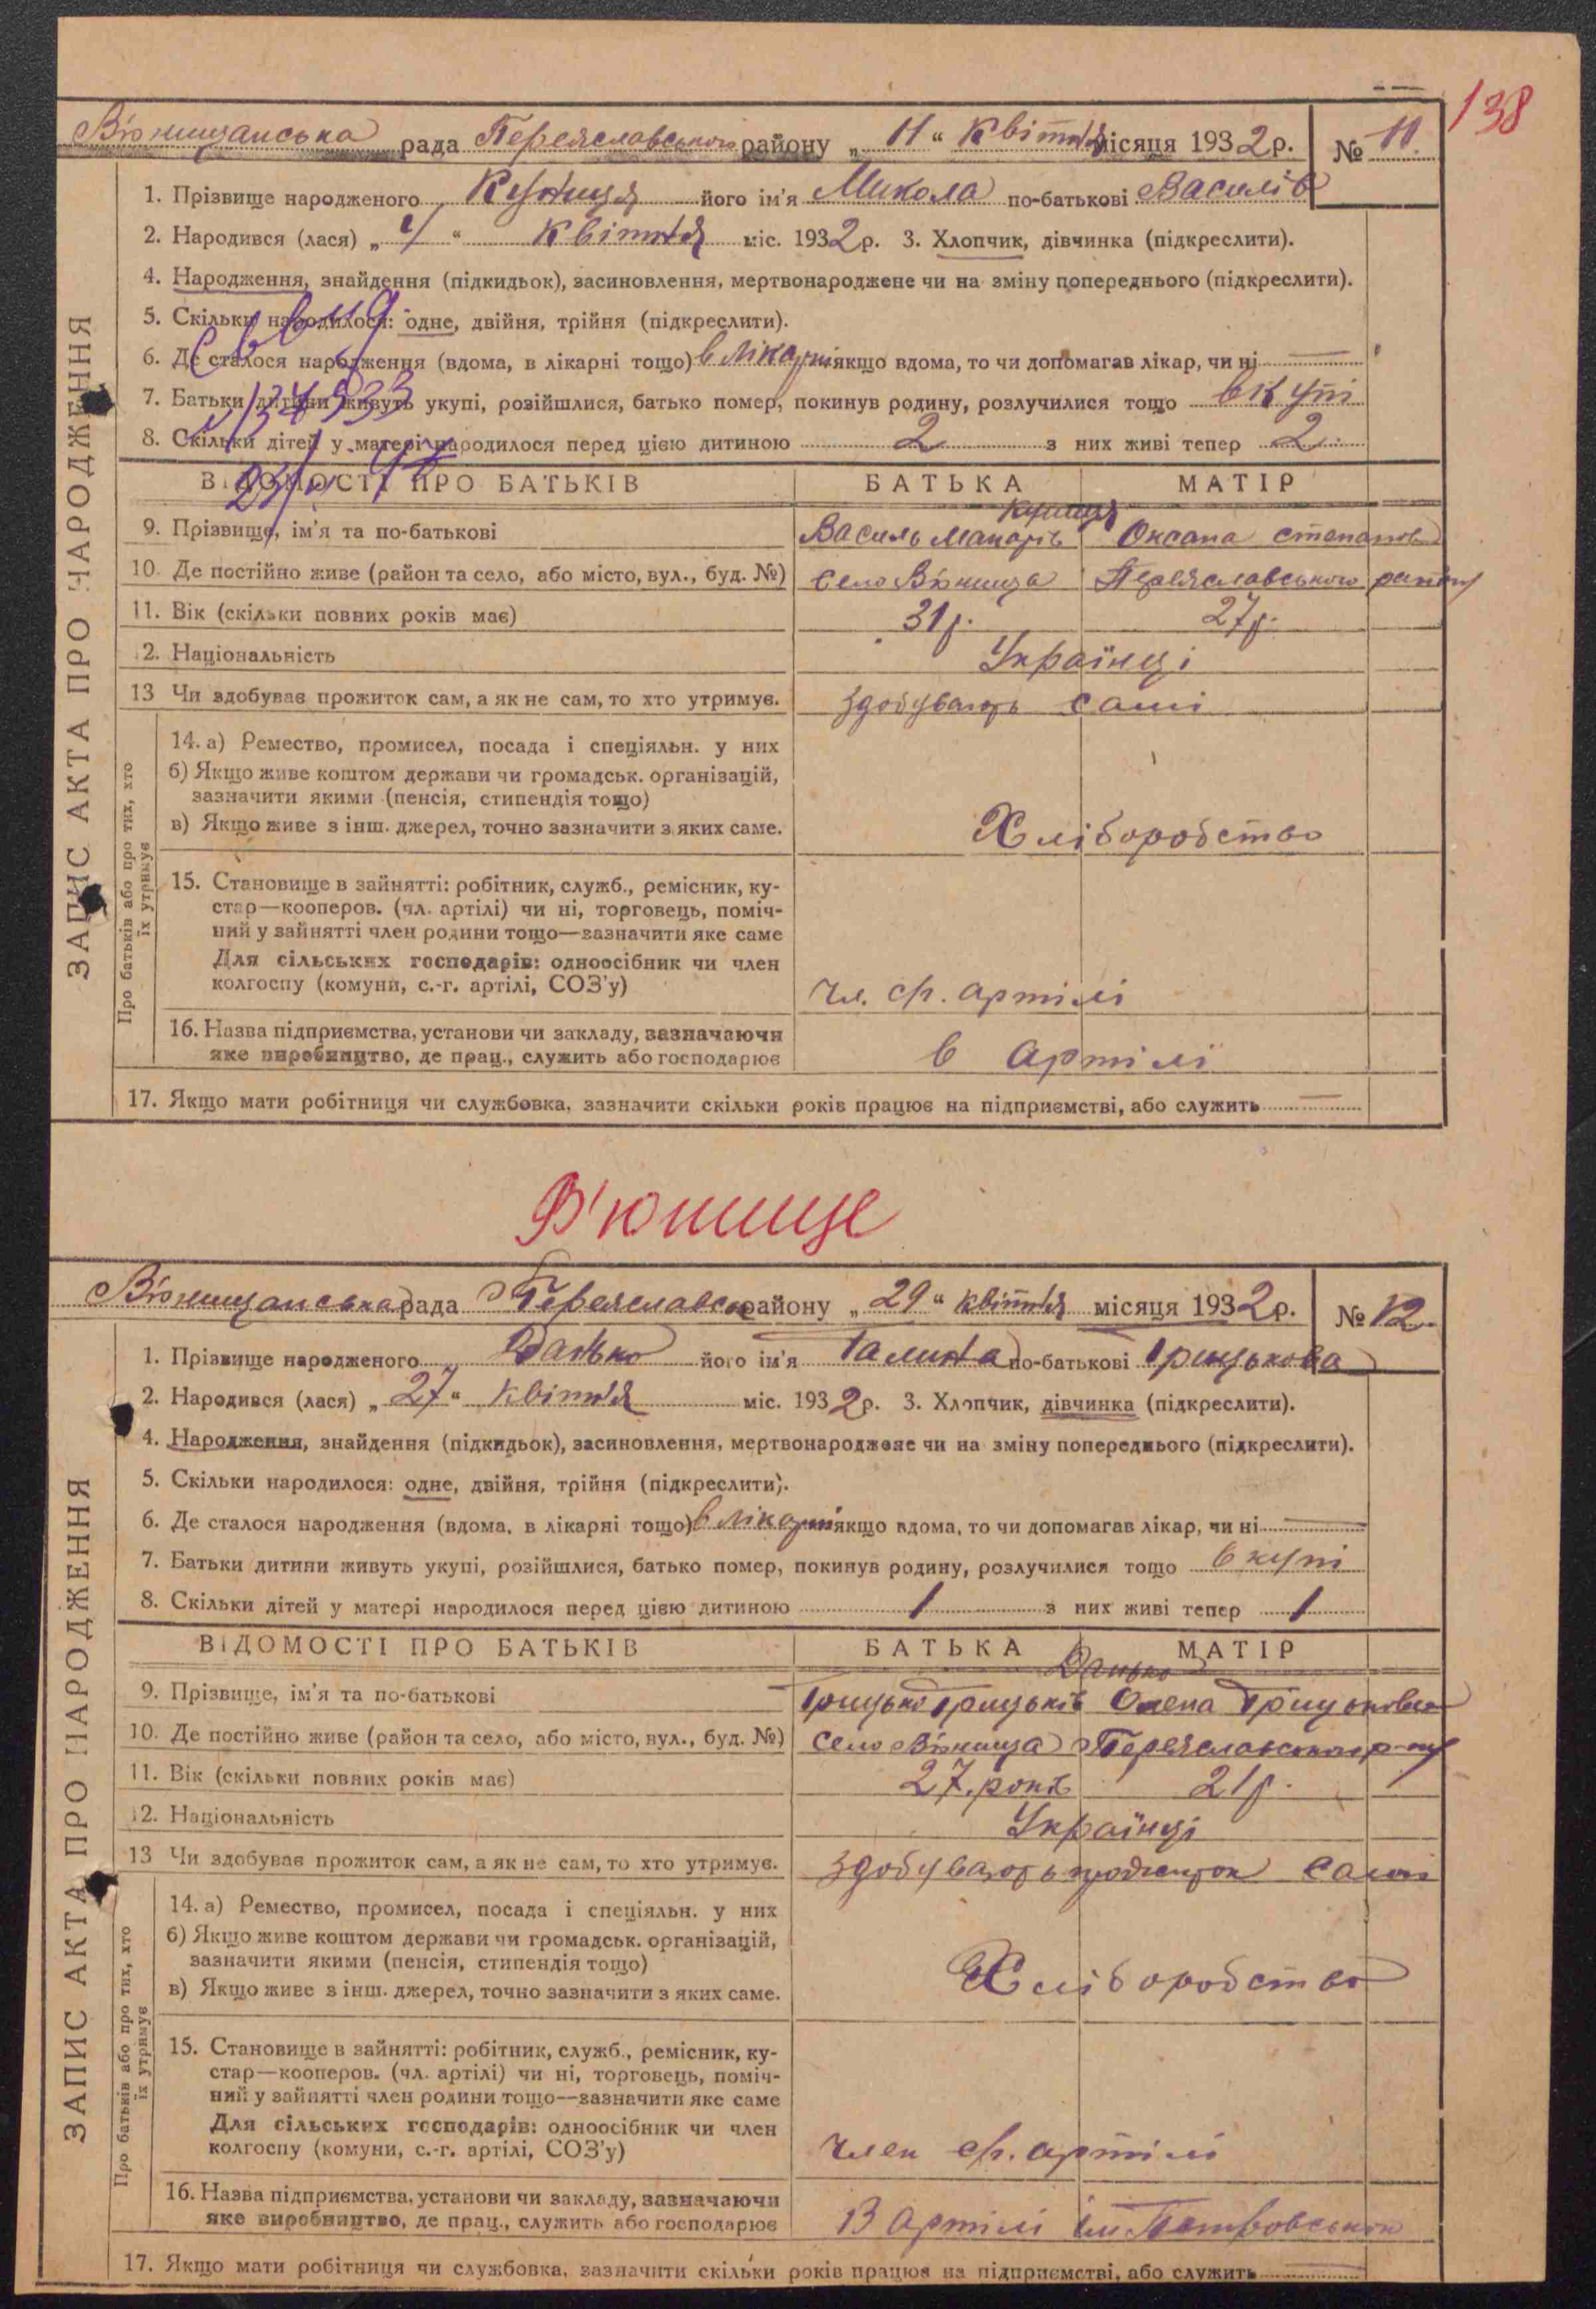 138
Вюнищанська рада Переяславського району „ 11 “ квітня місяця 1932 р. № 11.
1. Прізвище народженого Куниця його ім'я Микола по-батькові Василів
2. Народився (лася) „ 4 “ квітня міс. 1932 р. 3. Хлопчик, дівчинка (підкреслити).
4. Народження, знайдення (підкидьок), засиновлення, мертвонароджене чи на зміну попереднього (підкреслити).
5. Скільки народилося: одне, двійня, трійня (підкреслити).
6. Де сталося народження (вдома, в лікарні тощо) в лікарні якщо вдома, то чи допомагав лікар, чи ні —
7. Батьки дитини живуть укупі, розійшлися, батько помер, покинув родину, розлучилися тощо вкупі
8. Скільки дітей у матері народилося перед цією дитиною 2 з них живі тепер 2.
ВІДОМОСТІ ПРО БАТЬКІВ БАТЬКА МАТІР
Куниця
9. Прізвище, ім'я та по-батькові Василь Макарів Оксана Степанов
10. Де постійно живе (район та село, або місто, вул., буд. №) Село Вюнища Переяславського району
11. Вік (скільки повних років має) 31 р. 27 р.
12. Національність Українці
13 Чи здобуває прожиток сам, а як не сам, то хто утримує. здобувають самі
14. а) Ремество, промисел, посада і спеціяльн. у них
б) Якщо живе коштом держави чи громадськ. організацій,
зазначити якими (пенсія, стипендія тощо)
в) Якщо живе з інш. джерел, точно зазначити з яких саме. Хліборобство
15. Становище в зайнятті: робітник, служб., ремісник, ку-
стар—кооперов. (чл. артілі) чи ні, торговець, поміч-
ний у зайнятті член родини тощо—зазначити яке саме
Для сільських господарів: одноосібник чи член
колгоспу (комуни, с.-г. артілі, СОЗ'у) чл. с/г. артілі
16. Назва підприємства, установи чи закладу, зазначаючи
яке виробництво, де прац., служить або господарює в артілі
17. Якщо мати робітниця чи службовка, зазначити скільки років працює на підприємстві, або служить —
ЗАПИС АКТА ПРО НАРОДЖЕННЯ
Про батьків або про тих, хто
їх утримує
В'юнище
Вюнищанська рада Переяславськ району „ 29 “ квітня місяця 1932 р. № 12.
1. Прізвище народженого Данько його ім'я Галина по-батькові Грицькова
2. Народився (лася) „ 27 “ квітня міс. 1932 р. 3. Хлопчик, дівчинка (підкреслити).
4. Народження, знайдення (підкидьок), засиновлення, мертвонароджене чи на зміну попереднього (підкреслити).
5. Скільки народилося: одне, двійня, трійня (підкреслити).
6. Де сталося народження (вдома, в лікарні тощо) в лікарні якщо вдома, то чи допомагав лікар, чи ні —
7. Батьки дитини живуть укупі, розійшлися, батько помер, покинув родину, розлучилися тощо вкупі
8. Скільки дітей у матері народилося перед цією дитиною 1 з них живі тепер 1
ВІДОМОСТІ ПРО БАТЬКІВ БАТЬКА МАТІР
Данько
9. Прізвище, ім'я та по-батькові Грицько Грицьків Олена Грицьковна
10. Де постійно живе (район та село, або місто, вул., буд. №) Село Вюнища Переяславського р-ну
11. Вік (скільки повних років має) 27. років 21 р.
12. Національність Українці
13 Чи здобуває прожиток сам, а як не сам, то хто утримує. здобувають прожиток самі
14. а) Ремество, промисел, посада і спеціяльн. у них
б) Якщо живе коштом держави чи громадськ. організацій,
зазначити якими (пенсія, стипендія тощо)
в) Якщо живе з інш. джерел, точно зазначити з яких саме. Хліборобство
15. Становище в зайнятті: робітник, служб., ремісник, ку-
стар—кооперов. (чл. артілі) чи ні, торговець, поміч-
ний у зайнятті член родини тощо—зазначити яке саме
Для сільських господарів: одноосібник чи член
колгоспу (комуни, с.-г. артілі, СОЗ'у) член с/г. артілі
16. Назва підприємства, установи чи закладу, зазначаючи
яке виробництво, де прац., служить або господарює В артілі ім Петровського
17. Якщо мати робітниця чи службовка, зазначити скільки років працює на підприємстві, або служить —
ЗАПИС АКТА ПРО НАРОДЖЕННЯ
Про батьків або про тих, хто
їх утримує